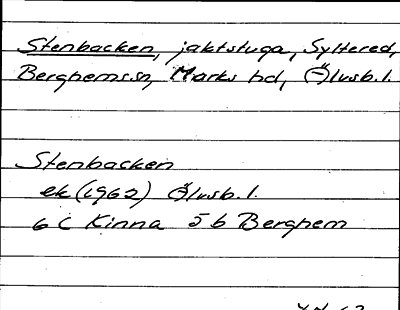 Stenbacken, jaktstuga, Syltered,
Berghems sn, Marks hd, Älvsb. l.
Stenbacken
ek (1962) Älvsb. l.
6 C Kinna 5 b Berghem